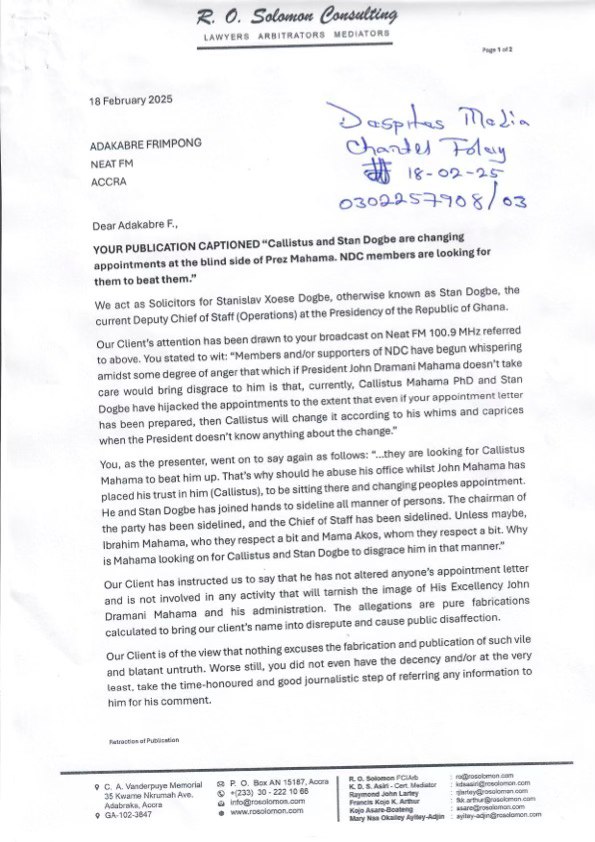 R. O. Solomon Consulting
LAWYERS ARBITRATORS MEDIATORS
Page 1 of 2
18 February 2025
Despites Media
Chantel Foley
18-02-25
0302257908/03
ADAKABRE FRIMPONG
NEAT FM
ACCRA
Dear Adakabre F.,
YOUR PUBLICATION CAPTIONED “Callistus and Stan Dogbe are changing
appointments at the blind side of Prez Mahama. NDC members are looking for
them to beat them.”
We act as Solicitors for Stanislav Xoese Dogbe, otherwise known as Stan Dogbe, the
current Deputy Chief of Staff (Operations) at the Presidency of the Republic of Ghana.
Our Client’s attention has been drawn to your broadcast on Neat FM 100.9 MHz referred
to above. You stated to wit: “Members and/or supporters of NDC have begun whispering
amidst some degree of anger that which if President John Dramani Mahama doesn’t take
care would bring disgrace to him is that, currently, Callistus Mahama PhD and Stan
Dogbe have hijacked the appointments to the extent that even if your appointment letter
has been prepared, then Callistus will change it according to his whims and caprices
when the President doesn’t know anything about the change.”
You, as the presenter, went on to say again as follows: “...they are looking for Callistus
Mahama to beat him up. That’s why should he abuse his office whilst John Mahama has
placed his trust in him (Callistus), to be sitting there and changing peoples appointment.
He and Stan Dogbe has joined hands to sideline all manner of persons. The chairman of
the party has been sidelined, and the Chief of Staff has been sidelined. Unless maybe,
Ibrahim Mahama, who they respect a bit and Mama Akos, whom they respect a bit. Why
is Mahama looking on for Callistus and Stan Dogbe to disgrace him in that manner.”
Our Client has instructed us to say that he has not altered anyone’s appointment letter
and is not involved in any activity that will tarnish the image of His Excellency John
Dramani Mahama and his administration. The allegations are pure fabrications
calculated to bring our client’s name into disrepute and cause public disaffection.
Our Client is of the view that nothing excuses the fabrication and publication of such vile
and blatant untruth. Worse still, you did not even have the decency and/or at the very
least, take the time-honoured and good journalistic step of referring any information to
him for his comment.
Retraction of Publication
C. A. Vanderpuye Memorial
35 Kwame Nkrumah Ave.
Adabraka, Accra
GA-102-3847
P. O. Box AN 15187, Accra
+(233) 30 - 222 10 66
info@rosolomon.com
www.rosolomon.com
R. O. Solomon FCIArb : ro@rosolomon.com
K. D. S. Asiri - Cert. Mediator : kdsasiri@rosolomon.com
Raymond John Lartey : rjlartey@rosolomon.com
Francis Kojo K. Arthur : fkk.arthur@rosolomon.com
Kojo Asare-Boateng : asare@rosolomon.com
Mary Naa Okailey Ayitey-Adjin : ayitey-adjin@rosolomon.com